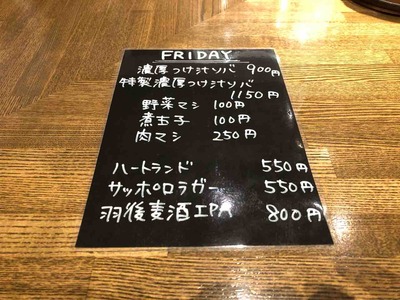 FRIDAY
濃厚つけ汁ソバ 900円
特製濃厚つけ汁ソバ
1150円
野菜マシ 100円
煮玉子 100円
肉マシ 250円
ハートランド 550円
サッポロラガー 550円
羽後麦酒IPA 800円